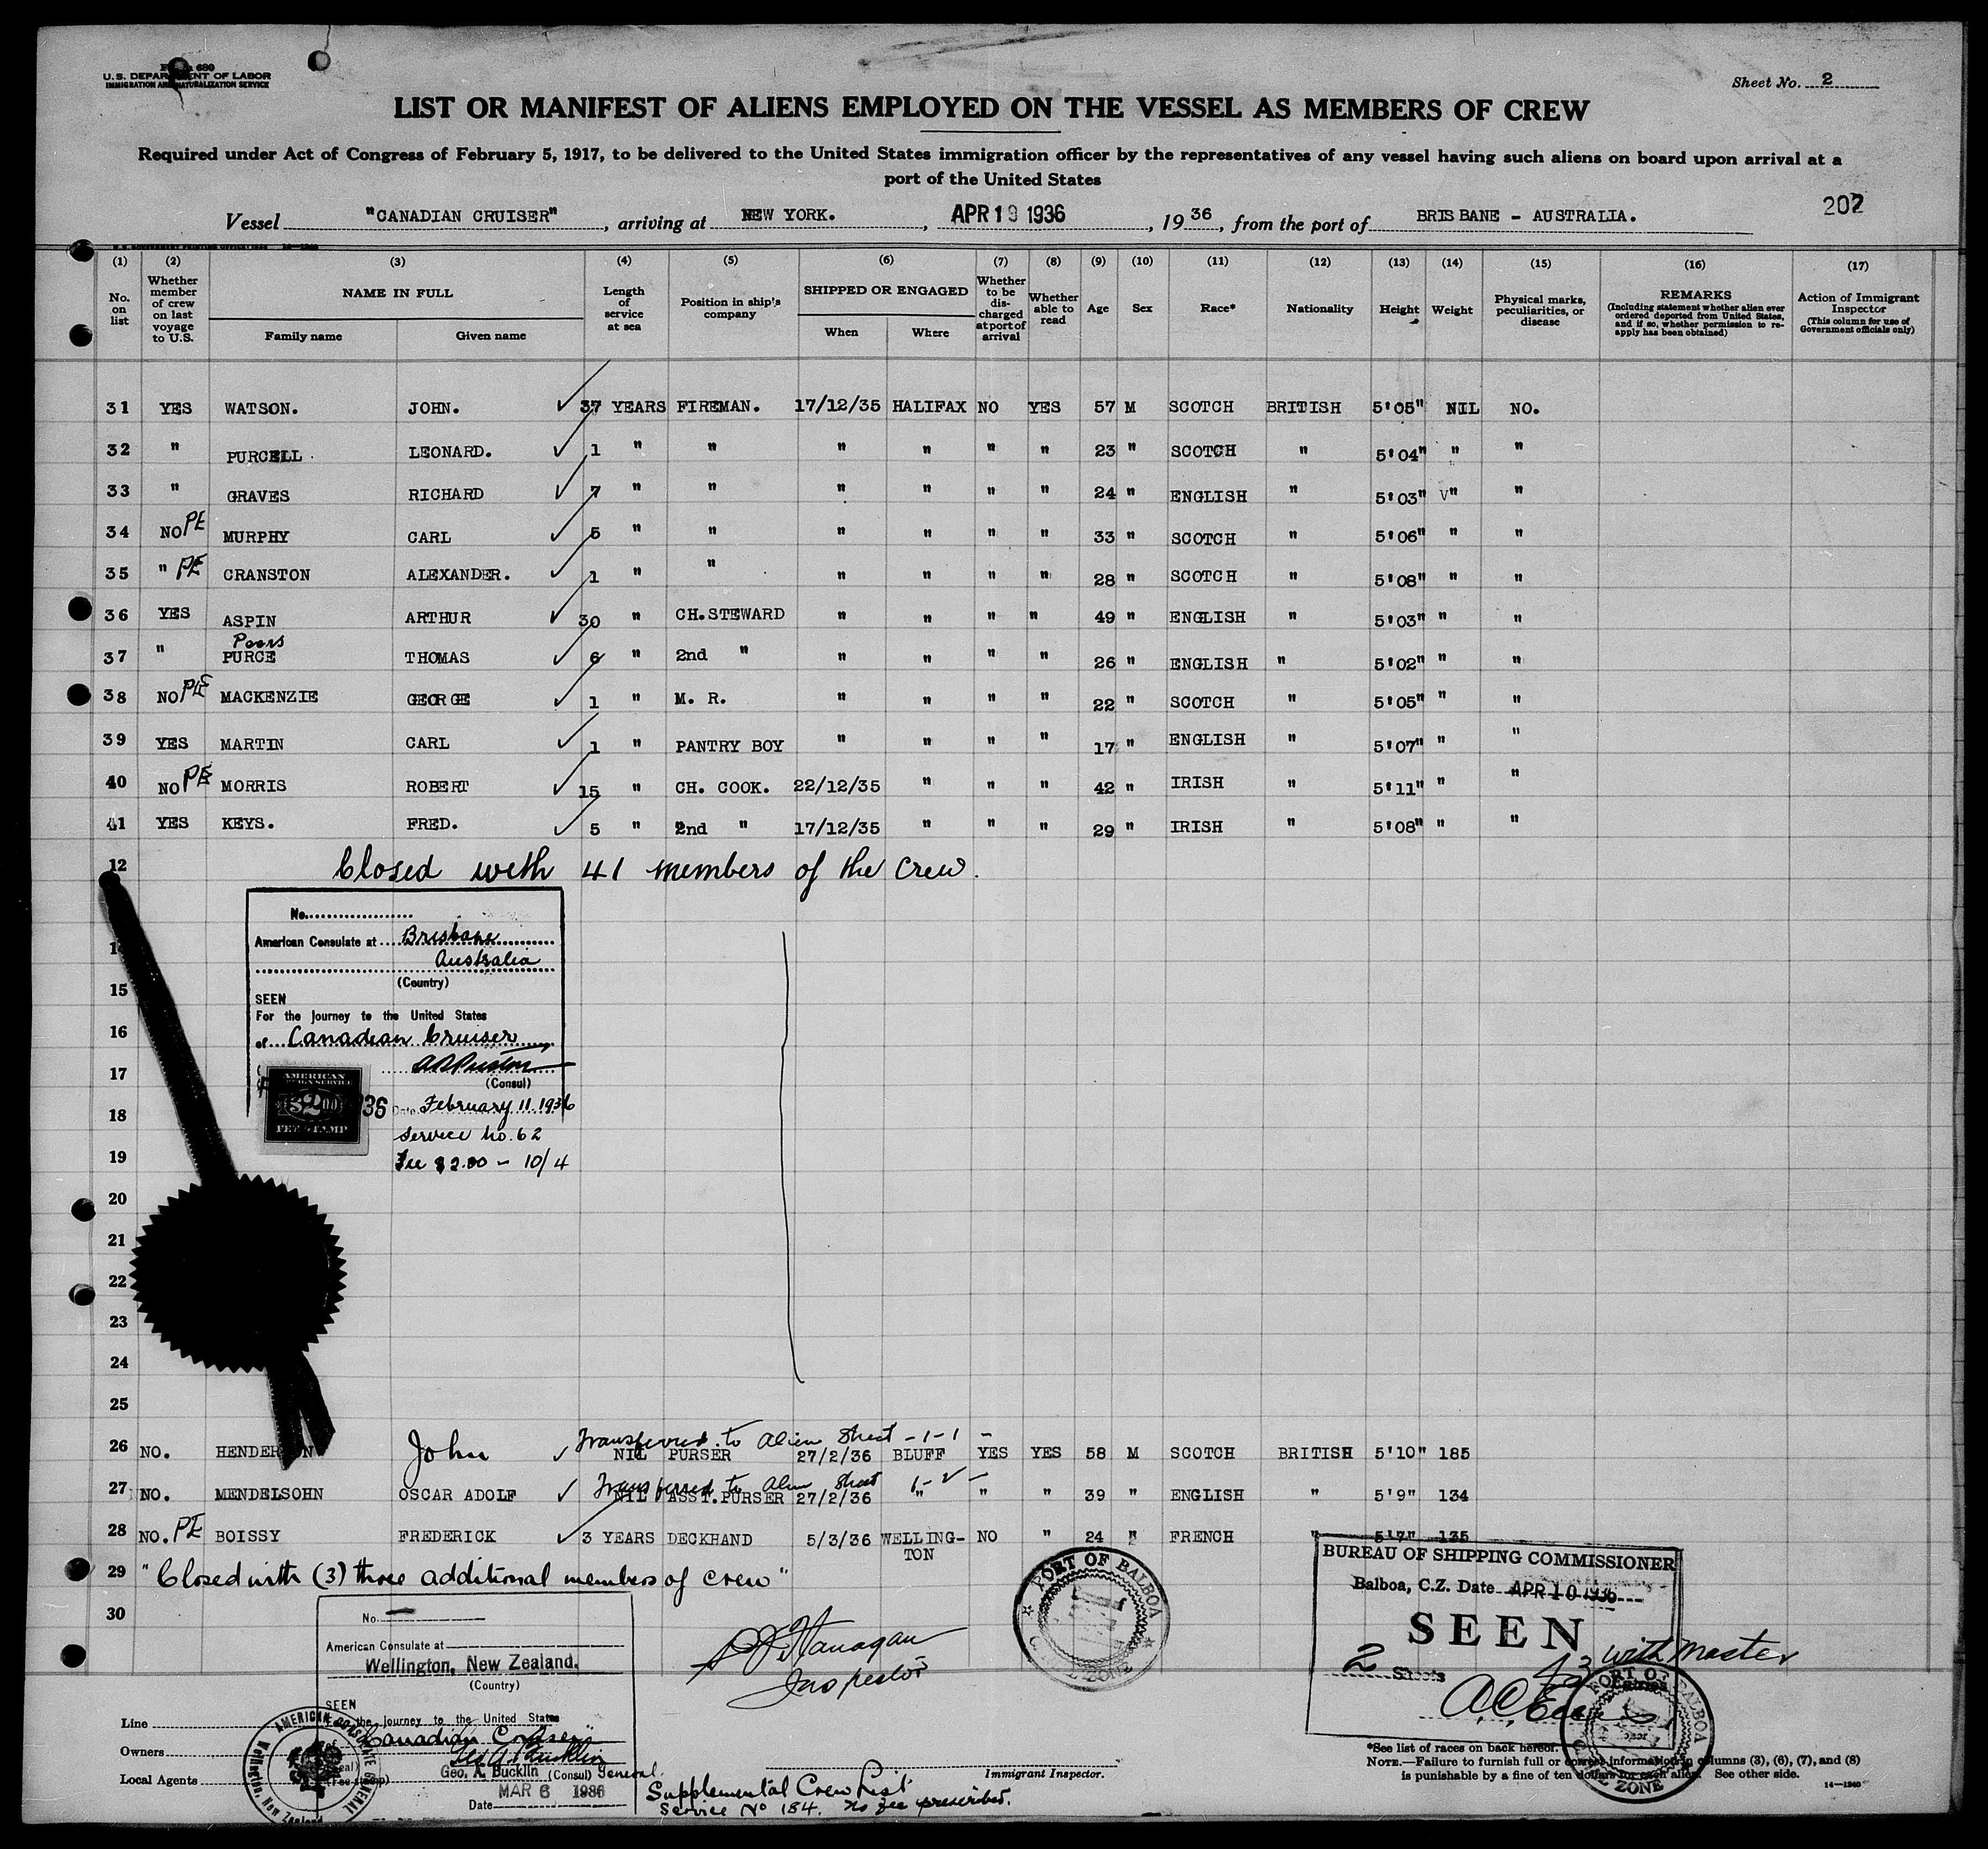 Form 680
U. S. DEPARTMENT OF LABOR
IMMIGRATION AND NATURALIZATION SERVICE
Sheet No. 2
LIST OR MANIFEST OF ALIENS EMPLOYED ON THE VESSEL AS MEMBERS OF CREW
Required under Act of Congress of February 5, 1917, to be delivered to the United States immigration officer by the representatives of any vessel having such aliens on board upon arrival at a
port of the United States
202
Vessel "CANADIAN CRUISER", arriving at NEW YORK., APR 19 1936, 1936, from the port of BRISBANE - AUSTRALIA.
(1) (2) (3) (4) (5) (6) (7) (8) (9) (10) (11) (12) (13) (14) (15) (16) (17)
No. on list
Whether member of crew on last voyage to U.S.
NAME IN FULL
Family name
Given name
Length of service at sea
Position in ship's company
SHIPPED OR ENGAGED
When
Where
Whether to be discharged at port of arrival
Whether able to read
Age
Sex
Race*
Nationality
Height
Weight
Physical marks, peculiarities, or disease
REMARKS
(Including statement whether alien ever ordered deported from United States, and if so, whether permission to re-apply has been obtained)
Action of Immigrant Inspector
(This column for use of Government officials only)
31 YES WATSON. JOHN. 37 YEARS FIREMAN. 17/12/35 HALIFAX NO YES 57 M SCOTCH BRITISH 5'05" NIL NO.
32 " PURCELL LEONARD. 1 " " " " " " 23 " SCOTCH " 5'04" " "
33 " GRAVES RICHARD 7 " " " " " " 24 " ENGLISH " 5'03" " "
34 NO PE MURPHY CARL 5 " " " " " " 33 " SCOTCH " 5'06" " "
35 " PE CRANSTON ALEXANDER. 1 " " " " " " 28 " SCOTCH " 5'08" " "
36 YES ASPIN ARTHUR 30 " CH.STEWARD " " " " 49 " ENGLISH " 5'03" " "
Peers
37 " PURCE THOMAS 6 " 2nd " " " " " 26 " ENGLISH " 5'02" " "
38 NO MACKENZIE GEORGE 1 " M. R. " " " " 22 " SCOTCH " 5'05" " "
39 YES MARTIN CARL 1 " PANTRY BOY " " " " 17 " ENGLISH " 5'07" " "
40 NO PE MORRIS ROBERT 15 " CH. COOK. 22/12/35 " " " 42 " IRISH " 5'11" " "
41 YES KEYS. FRED. 5 " 2nd " 17/12/35 " " " 29 " IRISH " 5'08" " "
12 Closed with 41 members of the crew.
No.
American Consulate at Brisbane
Australia
(Country)
14
15
SEEN
For the journey to the United States
16
of Canadian Cruiser
17
(Consul)
AMERICAN
FOREIGN SERVICE
$2.00
FEE STAMP
36
Date February 11. 1936
18
Service No. 62
19
Fee $2.00 - 10/4
20
21
22
23
24
25
Transferred to Alien Sheet -1-1-
26 NO. HENDERSON John NIL PURSER 27/2/36 BLUFF YES YES 58 M SCOTCH BRITISH 5'10" 185
Transferred to Alien Sheet 1-2-
27 NO. MENDELSOHN OSCAR ADOLF NIL ASST.PURSER 27/2/36 " " " 39 " ENGLISH " 5'9" 134
28 NO. PE BOISSY FREDERICK 3 YEARS DECKHAND 5/3/36 WELLINGTON NO " 24 " FRENCH " 5'7" 135
29 "Closed with (3) three additional members of crew"
30
No.
American Consulate at
Wellington, New Zealand.
(Country)
SEEN
For the journey to the United States
of Canadian Cruiser
Geo. A. Bucklin
Geo. A. Bucklin (Consul) General.
Date MAR 6 1936
AMERICAN CONSULATE GENERAL
Wellington, New Zealand
Inspector
PORT OF BALBOA
CANAL ZONE
BUREAU OF SHIPPING COMMISSIONER
Balboa, C.Z. Date APR 10 1936
SEEN
2 Sheets
with master
PORT OF BALBOA
CANAL ZONE
Line
Owners
Local Agents
Supplemental Crew List.
Service No 184. No fee prescribed.
Immigrant Inspector.
*See list of races on back hereof.
NOTE.—Failure to furnish full or correct information in columns (3), (6), (7), and (8)
is punishable by a fine of ten dollars for each alien. See other side.
14—1240